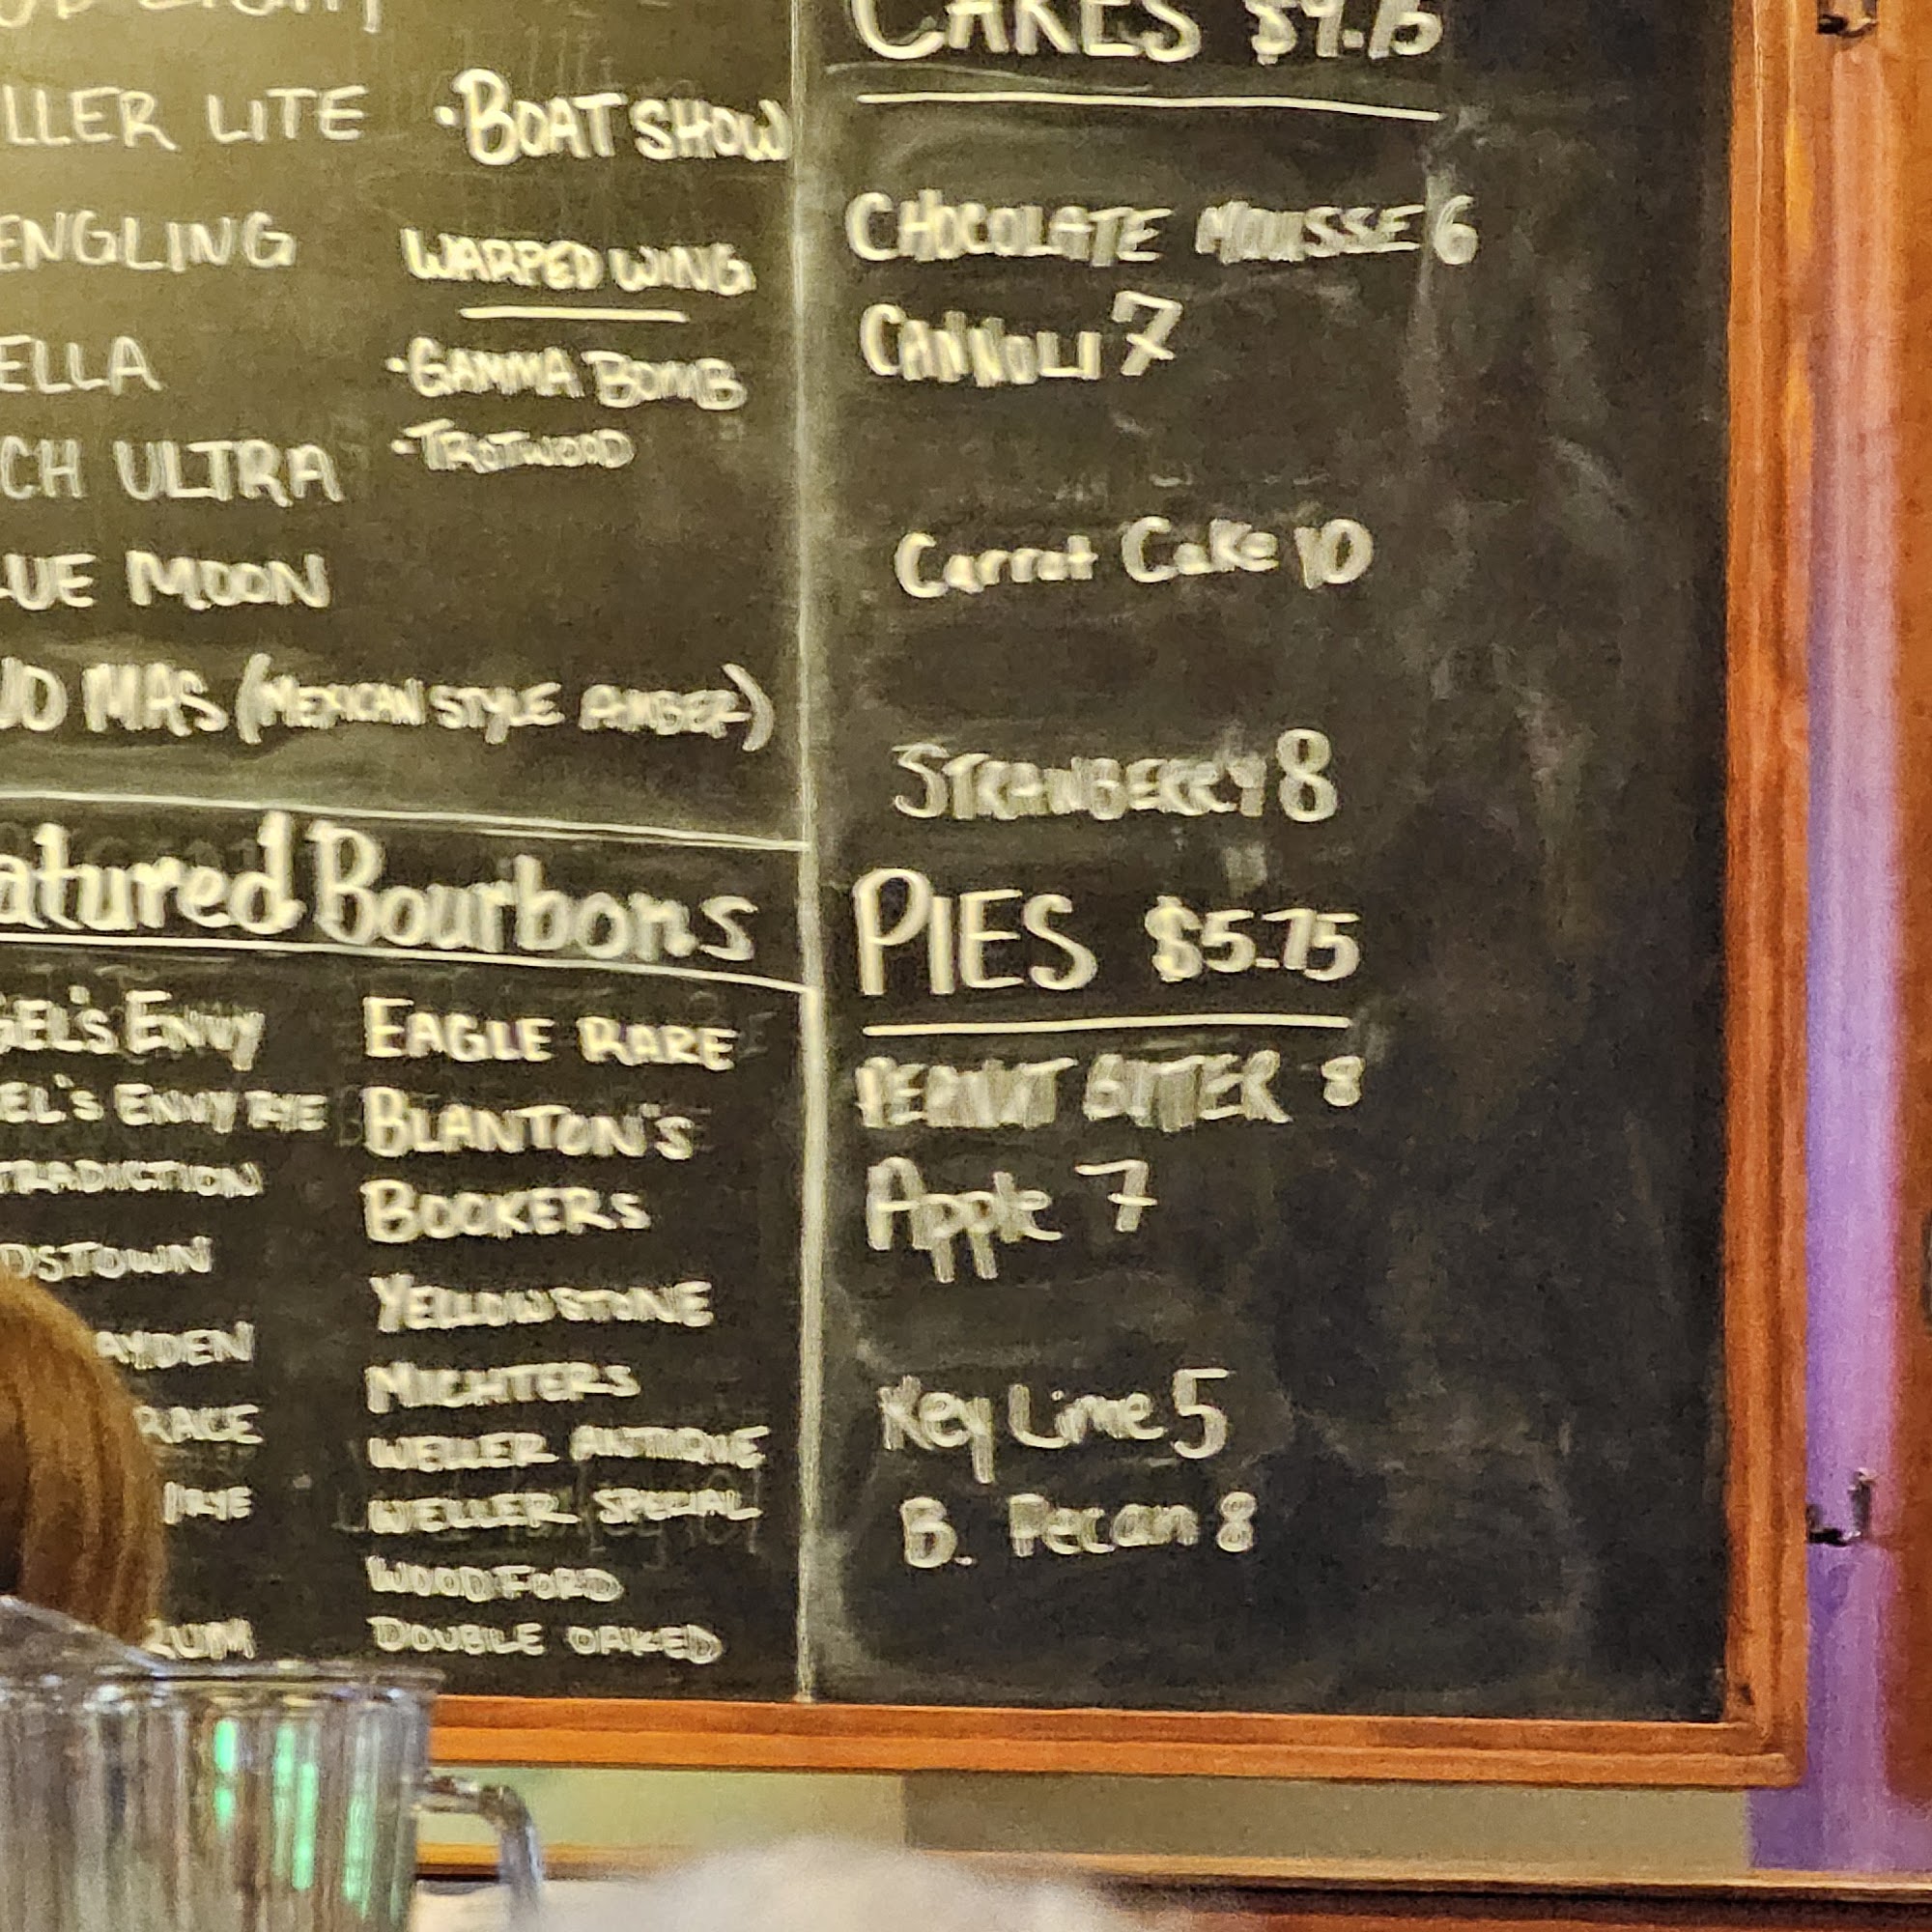 LLER LITE
ENGLING
ELLA
CH ULTRA
LUE MOON
UO MAS (MEXICAN STYLE AMBER)
·BOAT SHOW
WARPED WING
·GAMMA BOMB
·TROTWOOD
atured Bourbons
GEL'S ENVY
EL'S ENVY RYE
TRADICTION
DSTOWN
AYDEN
RACE
RYE
RUM
EAGLE RARE
BLANTON'S
BOOKERS
YELLOWSTONE
MICHTERS
WELLER ANTIQUE
WELLER SPECIAL
WOODFORD
DOUBLE OAKED
CAKES
CHOCOLATE MOUSSE 6
CANNOLI 7
Carrot Cake 10
STRAWBERRY 8
PIES $5.75
PEANUT BUTTER 8
Apple 7
Key Lime 5
B. Pecan 8